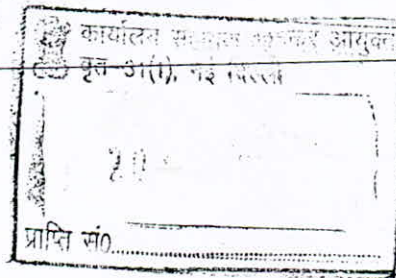 कार्यालय सहायक आयकर आयुक्त
वृत्त-31(1), नई दिल्ली
प्राप्ति सं0